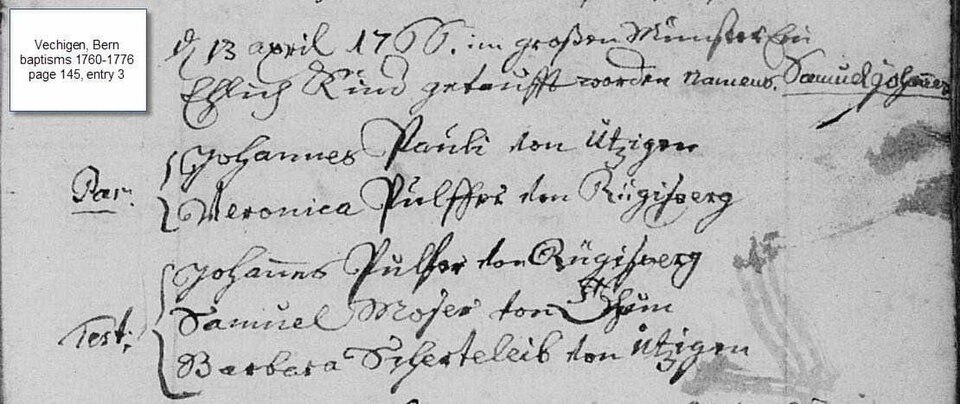 Vechigen, Bern
baptisms 1760-1776
page 145, entry 3
d 13 april 1766. im großen Münster Ein
Ehlich Kind getaufft worden namens. Samuel Johannes
Par: Johannes Pauli von Ützigen
Veronica Pulffer von Rügisperg
Test: Johannes Pulfer von Rügisperg
Samuel Moser von Thun
Barbara Scherteleib von Ützigen